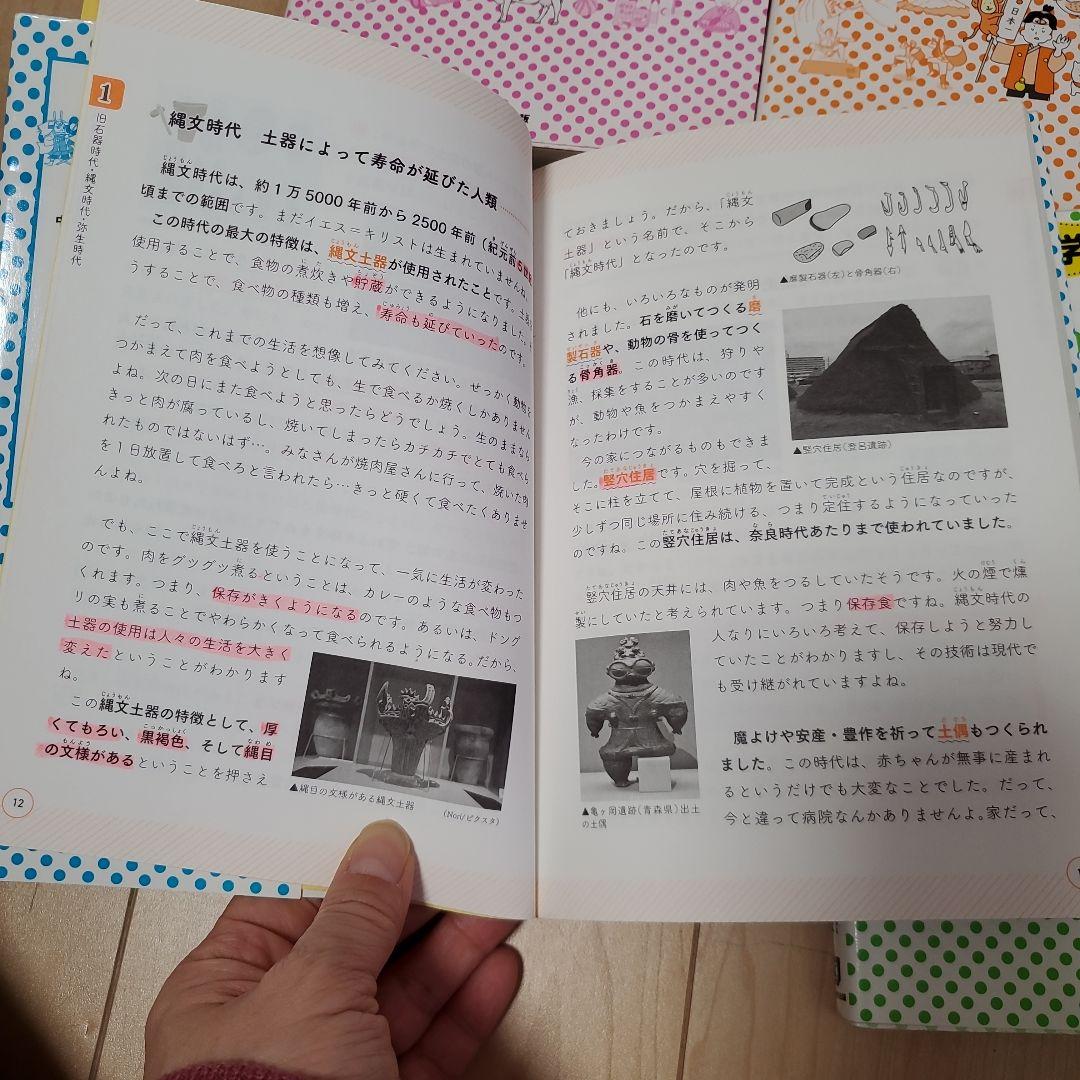 1
旧石器時代・縄文時代・弥生時代
縄文時代 土器によって寿命が延びた人類
縄文時代は、約1万5000年前から2500年前（紀元前5世紀
頃までの範囲です。まだイエス＝キリストは生まれていませんね。
この時代の最大の特徴は、縄文土器が使用されたことです。土器
使用することで、食物の煮炊きや貯蔵ができるようになりました。
うすることで、食べ物の種類も増え、寿命も延びていったのです。
だって、これまでの生活を想像してみてください。せっかく動物を
つかまえて肉を食べようとしても、生で食べるか焼くしかありません
よね。次の日にまた食べようと思ったらどうでしょう。生のままなら
きっと肉が腐っているし、焼いてしまったらカチカチでとても食べら
れたものではないはず…。みなさんが焼肉屋さんに行って、焼いた肉
を1日放置して食べろと言われたら…きっと硬くて食べたくありませ
んよね。
でも、ここで縄文土器を使うことになって、一気に生活が変わった
のです。肉をグツグツ煮るということは、カレーのような食べ物もつ
くれます。つまり、保存がきくようになるのです。あるいは、ドング
リの実も煮ることでやわらかくなって食べられるようになる。だから、
土器の使用は人々の生活を大きく
変えたということがわかります
ね。
この縄文土器の特徴として、厚
くてもろい、黒褐色、そして縄目
の文様があるということを押さえ
▲縄目の文様がある縄文土器
(Nori/ピクスタ)
12
ておきましょう。だから、「縄文
土器」という名前で、そこから
「縄文時代」となったのです。
▲磨製石器(左)と骨角器(右)
他にも、いろいろなものが発明
されました。石を磨いてつくる磨
製石器や、動物の骨を使ってつく
る骨角器。この時代は、狩りや
漁、採集をすることが多いのです
が、動物や魚をつかまえやすく
なったわけです。
▲竪穴住居(登呂遺跡)
今の家につながるものもできま
した。竪穴住居です。穴を掘って、
そこに柱を立てて、屋根に植物を置いて完成という住居なのですが、
少しずつ同じ場所に住み続ける、つまり定住するようになっていった
のですね。この竪穴住居は、奈良時代あたりまで使われていました。
竪穴住居の天井には、肉や魚をつるしていたそうです。火の煙で燻
製にしていたと考えられています。つまり保存食ですね。縄文時代の
人なりにいろいろ考えて、保存しようと努力し
ていたことがわかりますし、その技術は現代で
も受け継がれていますよね。
魔よけや安産・豊作を祈って土偶もつくられ
ました。この時代は、赤ちゃんが無事に産まれ
るというだけでも大変なことでした。だって、
今と違って病院なんかありませんよ。家だって、
▲亀ヶ岡遺跡(青森県)出土
の土偶
日本